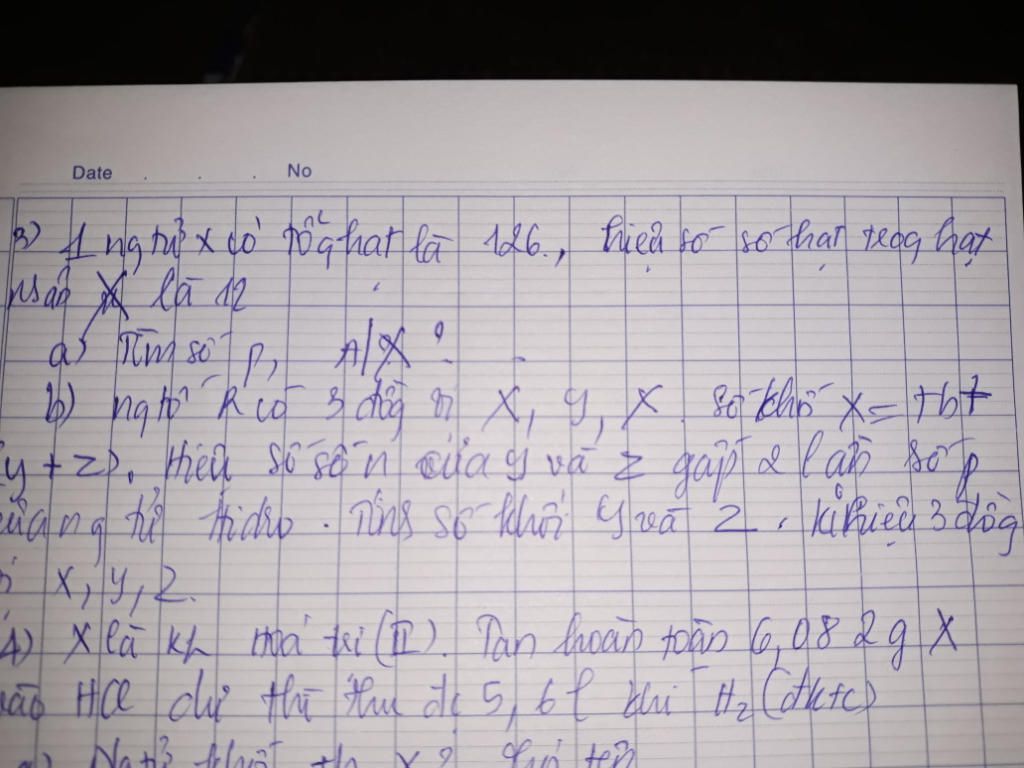 Date . . . No
3) 1 ng tử X có tổg hạt là 126., hiệu số số hạt trog hạt
nhân X là 12
a) Tìm số p, A/X ?
b) ng tố R có 3 đồg vị X, Y, X. số khố X =
(y + z). Hiệu số số n của y và z gấp 2 lần số p
của ng tử Hidro. Tính số khối Y và Z. kí hiệu 3 đồg
X, Y, Z.
4) X là KL Hoá trị (II). Tan hoàn toàn 6,082g X
vào HCl dư thì thu đc 5,6l khí H₂ (đktc)